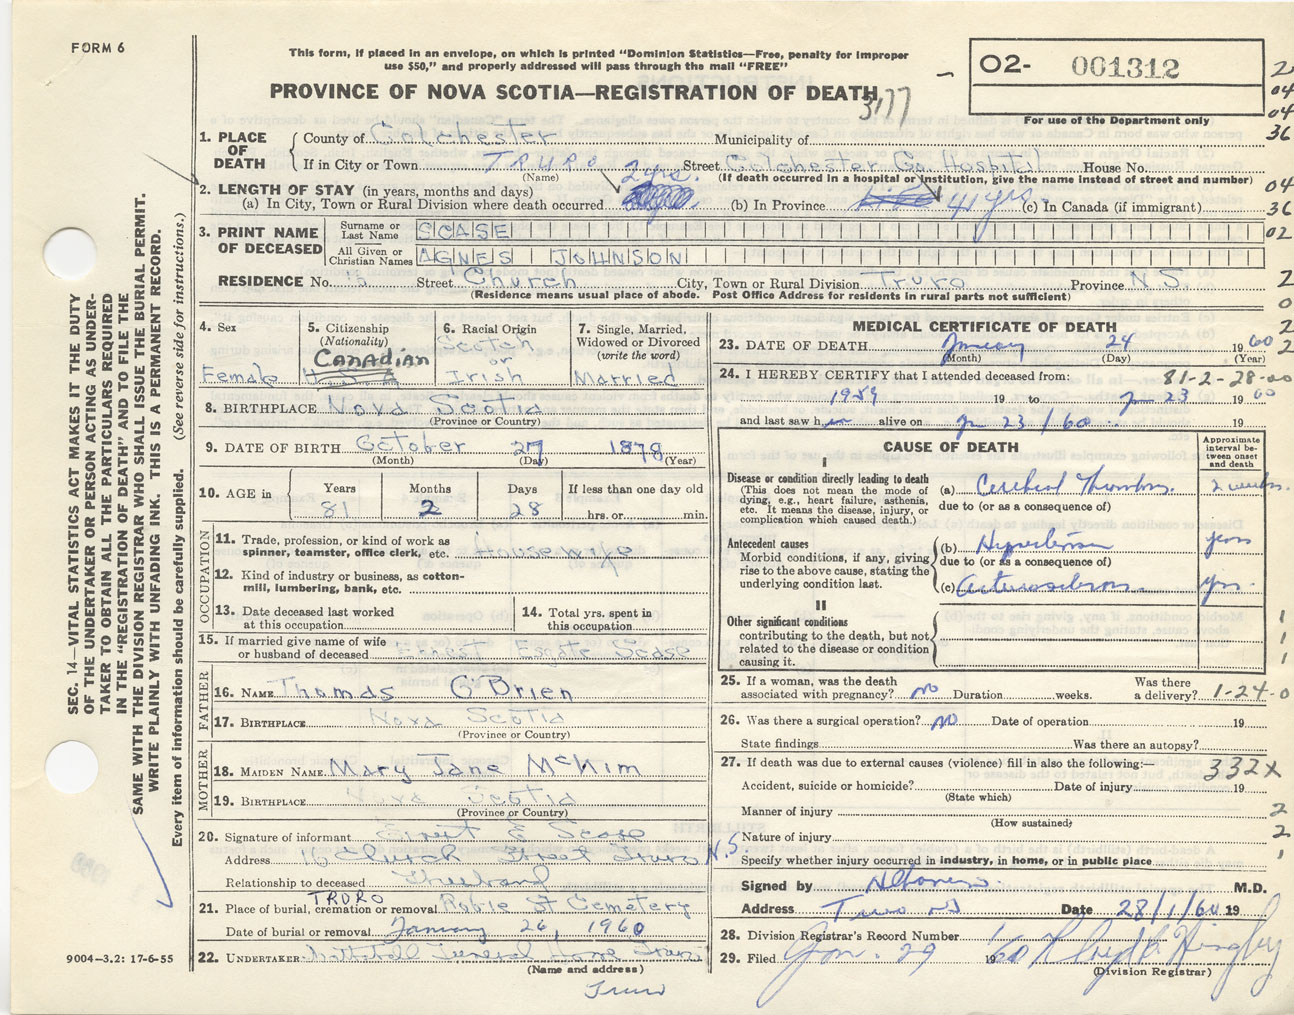 FORM 6
This form, if placed in an envelope, on which is printed "Dominion Statistics—Free, penalty for improper
use $50," and properly addressed will pass through the mail "FREE"
PROVINCE OF NOVA SCOTIA—REGISTRATION OF DEATH
3177
O2- 001312
For use of the Department only
1. PLACE OF DEATH
County of Colchester Municipality of
If in City or Town TRURO Street Colchester Co. Hospital House No.
(Name) (If death occurred in a hospital or institution, give the name instead of street and number)
2. LENGTH OF STAY (in years, months and days)
(a) In City, Town or Rural Division where death occurred 2 yrs. (b) In Province 41 yrs. (c) In Canada (if immigrant)
3. PRINT NAME OF DECEASED
Surname or Last Name SCASE
All Given or Christian Names AGNES JOHNSON
RESIDENCE No. 16 Street Church City, Town or Rural Division Truro Province N.S.
(Residence means usual place of abode. Post Office Address for residents in rural parts not sufficient)
4. Sex
Female
5. Citizenship
(Nationality)
CANADIAN
U.S.A.
6. Racial Origin
Scotch
or
Irish
7. Single, Married, Widowed or Divorced
(write the word)
Married
8. BIRTHPLACE Nova Scotia
(Province or Country)
9. DATE OF BIRTH October 27 1878
(Month) (Day) (Year)
10. AGE in
Years Months Days If less than one day old
81 2 28 hrs. or min.
OCCUPATION
11. Trade, profession, or kind of work as
spinner, teamster, office clerk, etc. Housewife
12. Kind of industry or business, as cotton-
mill, lumbering, bank, etc.
13. Date deceased last worked
at this occupation
14. Total yrs. spent in
this occupation
15. If married give name of wife
or husband of deceased Ernest Esgate Scase
FATHER
16. NAME Thomas O'Brien
17. BIRTHPLACE Nova Scotia
(Province or Country)
MOTHER
18. MAIDEN NAME Mary Jane McKim
19. BIRTHPLACE Nova Scotia
(Province or Country)
20. Signature of informant Ernest E Scase
Address 16 Church Street Truro N.S.
Relationship to deceased Husband
TRURO
21. Place of burial, cremation or removal Robie St Cemetery
Date of burial or removal January 26, 1960
22. UNDERTAKER Funeral Home Truro
(Name and address)
Truro
MEDICAL CERTIFICATE OF DEATH
23. DATE OF DEATH January 24 1960
(Month) (Day) (Year)
24. I HEREBY CERTIFY that I attended deceased from: 81-2-28-00
1959 19 to Jan 23 1960
and last saw h alive on Jan 23/60
CAUSE OF DEATH
Approximate interval between onset and death
I
Disease or condition directly leading to death
(This does not mean the mode of
dying, e.g., heart failure, asthenia,
etc. It means the disease, injury, or
complication which caused death.)
(a) Cerebral Thrombosis 2 weeks
due to (or as a consequence of)
Antecedent causes
Morbid conditions, if any, giving
rise to the above cause, stating the
underlying condition last.
(b) Hypertension years
due to (or as a consequence of)
(c) Arteriosclerosis yrs.
II
Other significant conditions
contributing to the death, but not
related to the disease or condition
causing it.
25. If a woman, was the death
associated with pregnancy? no Duration weeks. Was there a delivery? 1-24-0
26. Was there a surgical operation? no Date of operation 19
State findings Was there an autopsy?
27. If death was due to external causes (violence) fill in also the following:—
332X
Accident, suicide or homicide? Date of injury 19
(State which)
Manner of injury
(How sustained)
Nature of injury
Specify whether injury occurred in industry, in home, or in public place
Signed by M.D.
Address Truro NS Date 28/1/60 19
28. Division Registrar's Record Number
29. Filed Jan. 29 1960
(Division Registrar)
2
04
04
36
04
36
02
2
0
2
2
1
1
1
2
2
1
SEC. 14—VITAL STATISTICS ACT MAKES IT THE DUTY
OF THE UNDERTAKER OR PERSON ACTING AS UNDER-
TAKER TO OBTAIN ALL THE PARTICULARS REQUIRED
IN THE "REGISTRATION OF DEATH" AND TO FILE THE
SAME WITH THE DIVISION REGISTRAR WHO SHALL ISSUE THE BURIAL PERMIT.
WRITE PLAINLY WITH UNFADING INK. THIS IS A PERMANENT RECORD.
Every item of information should be carefully supplied. (See reverse side for instructions.)
9004—3.2: 17-6-55